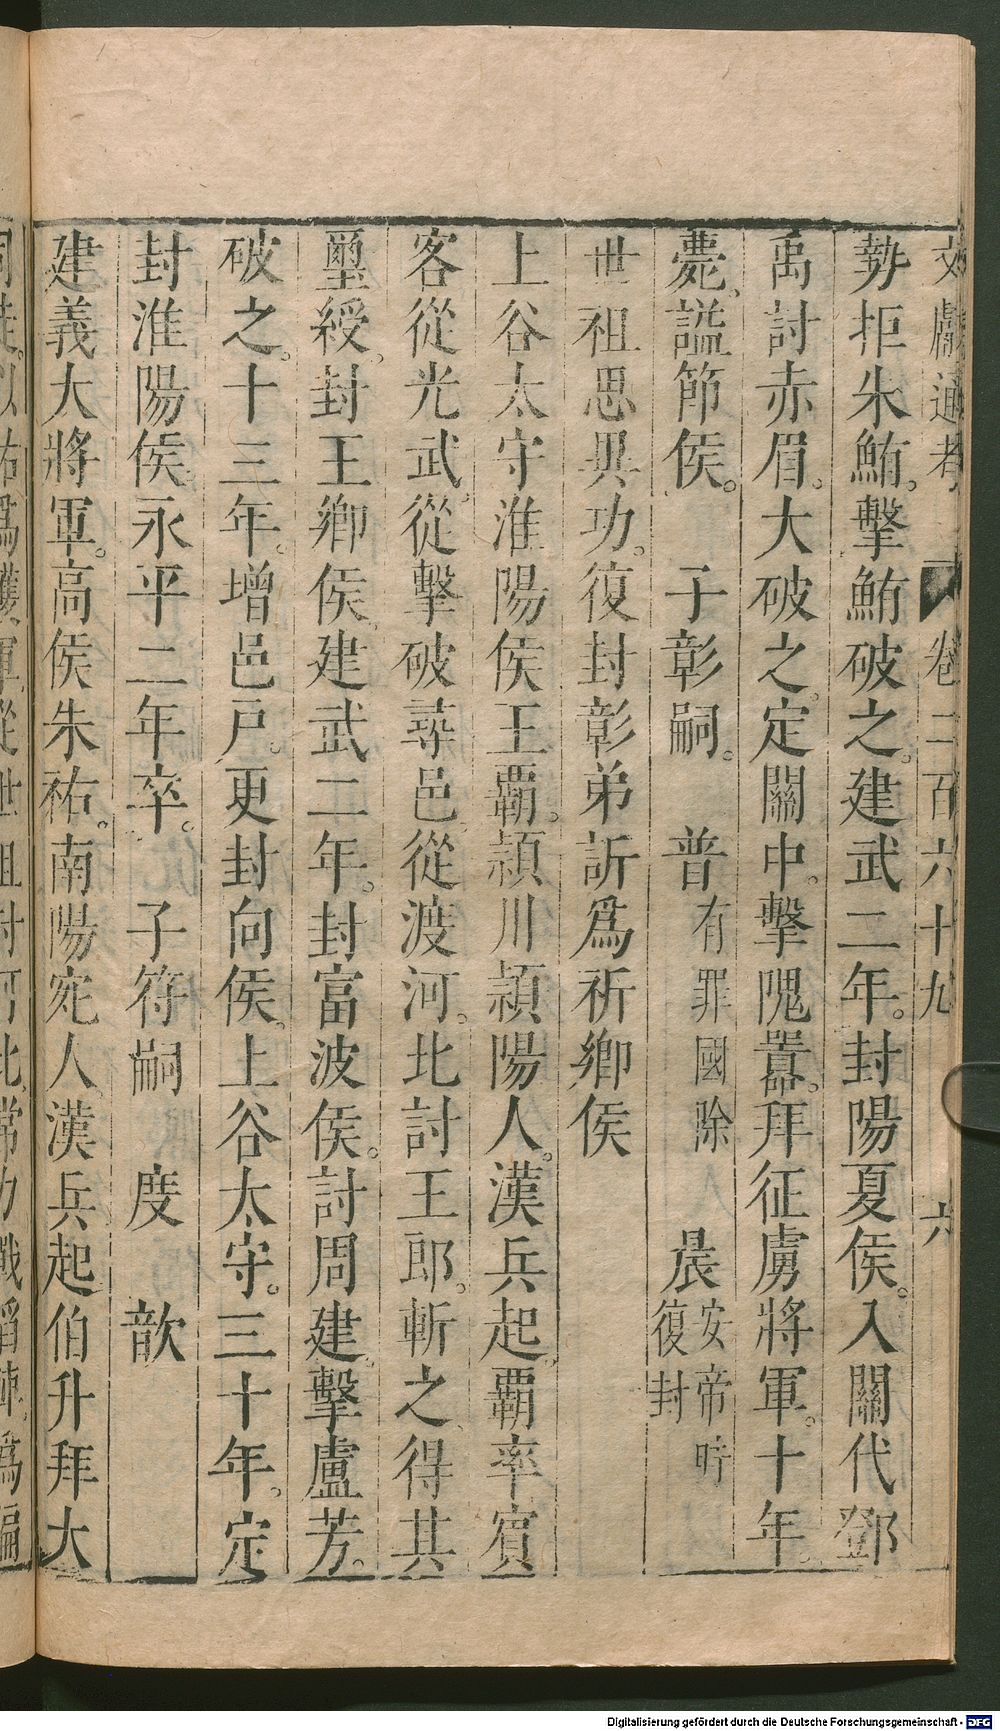 文獻通考 卷二百六十九 六
勢拒朱鮪。擊鮪破之。建武二年。封陽夏侯。入關代鄧
禹討赤眉。大破之。定關中。擊隗囂。拜征虜將軍。十年。
薨。謚節侯。 子彰嗣。 普 有罪國除 晨 安帝時復封
世祖思異功。復封彰弟訢爲祈鄉侯
上谷太守淮陽侯王霸。潁川潁陽人。漢兵起。霸率賓
客從光武。從擊破尋邑。從渡河。北討王郎。斬之。得其
璽綬。封王鄉侯。建武二年。封富波侯。討周建。擊盧芳。
破之。十三年。增邑戸。更封向侯。上谷太守。三十年。定
封淮陽侯。永平二年卒。 子符嗣 度 歆
建義大將軍。高侯朱祐。南陽宛人。漢兵起伯升拜大